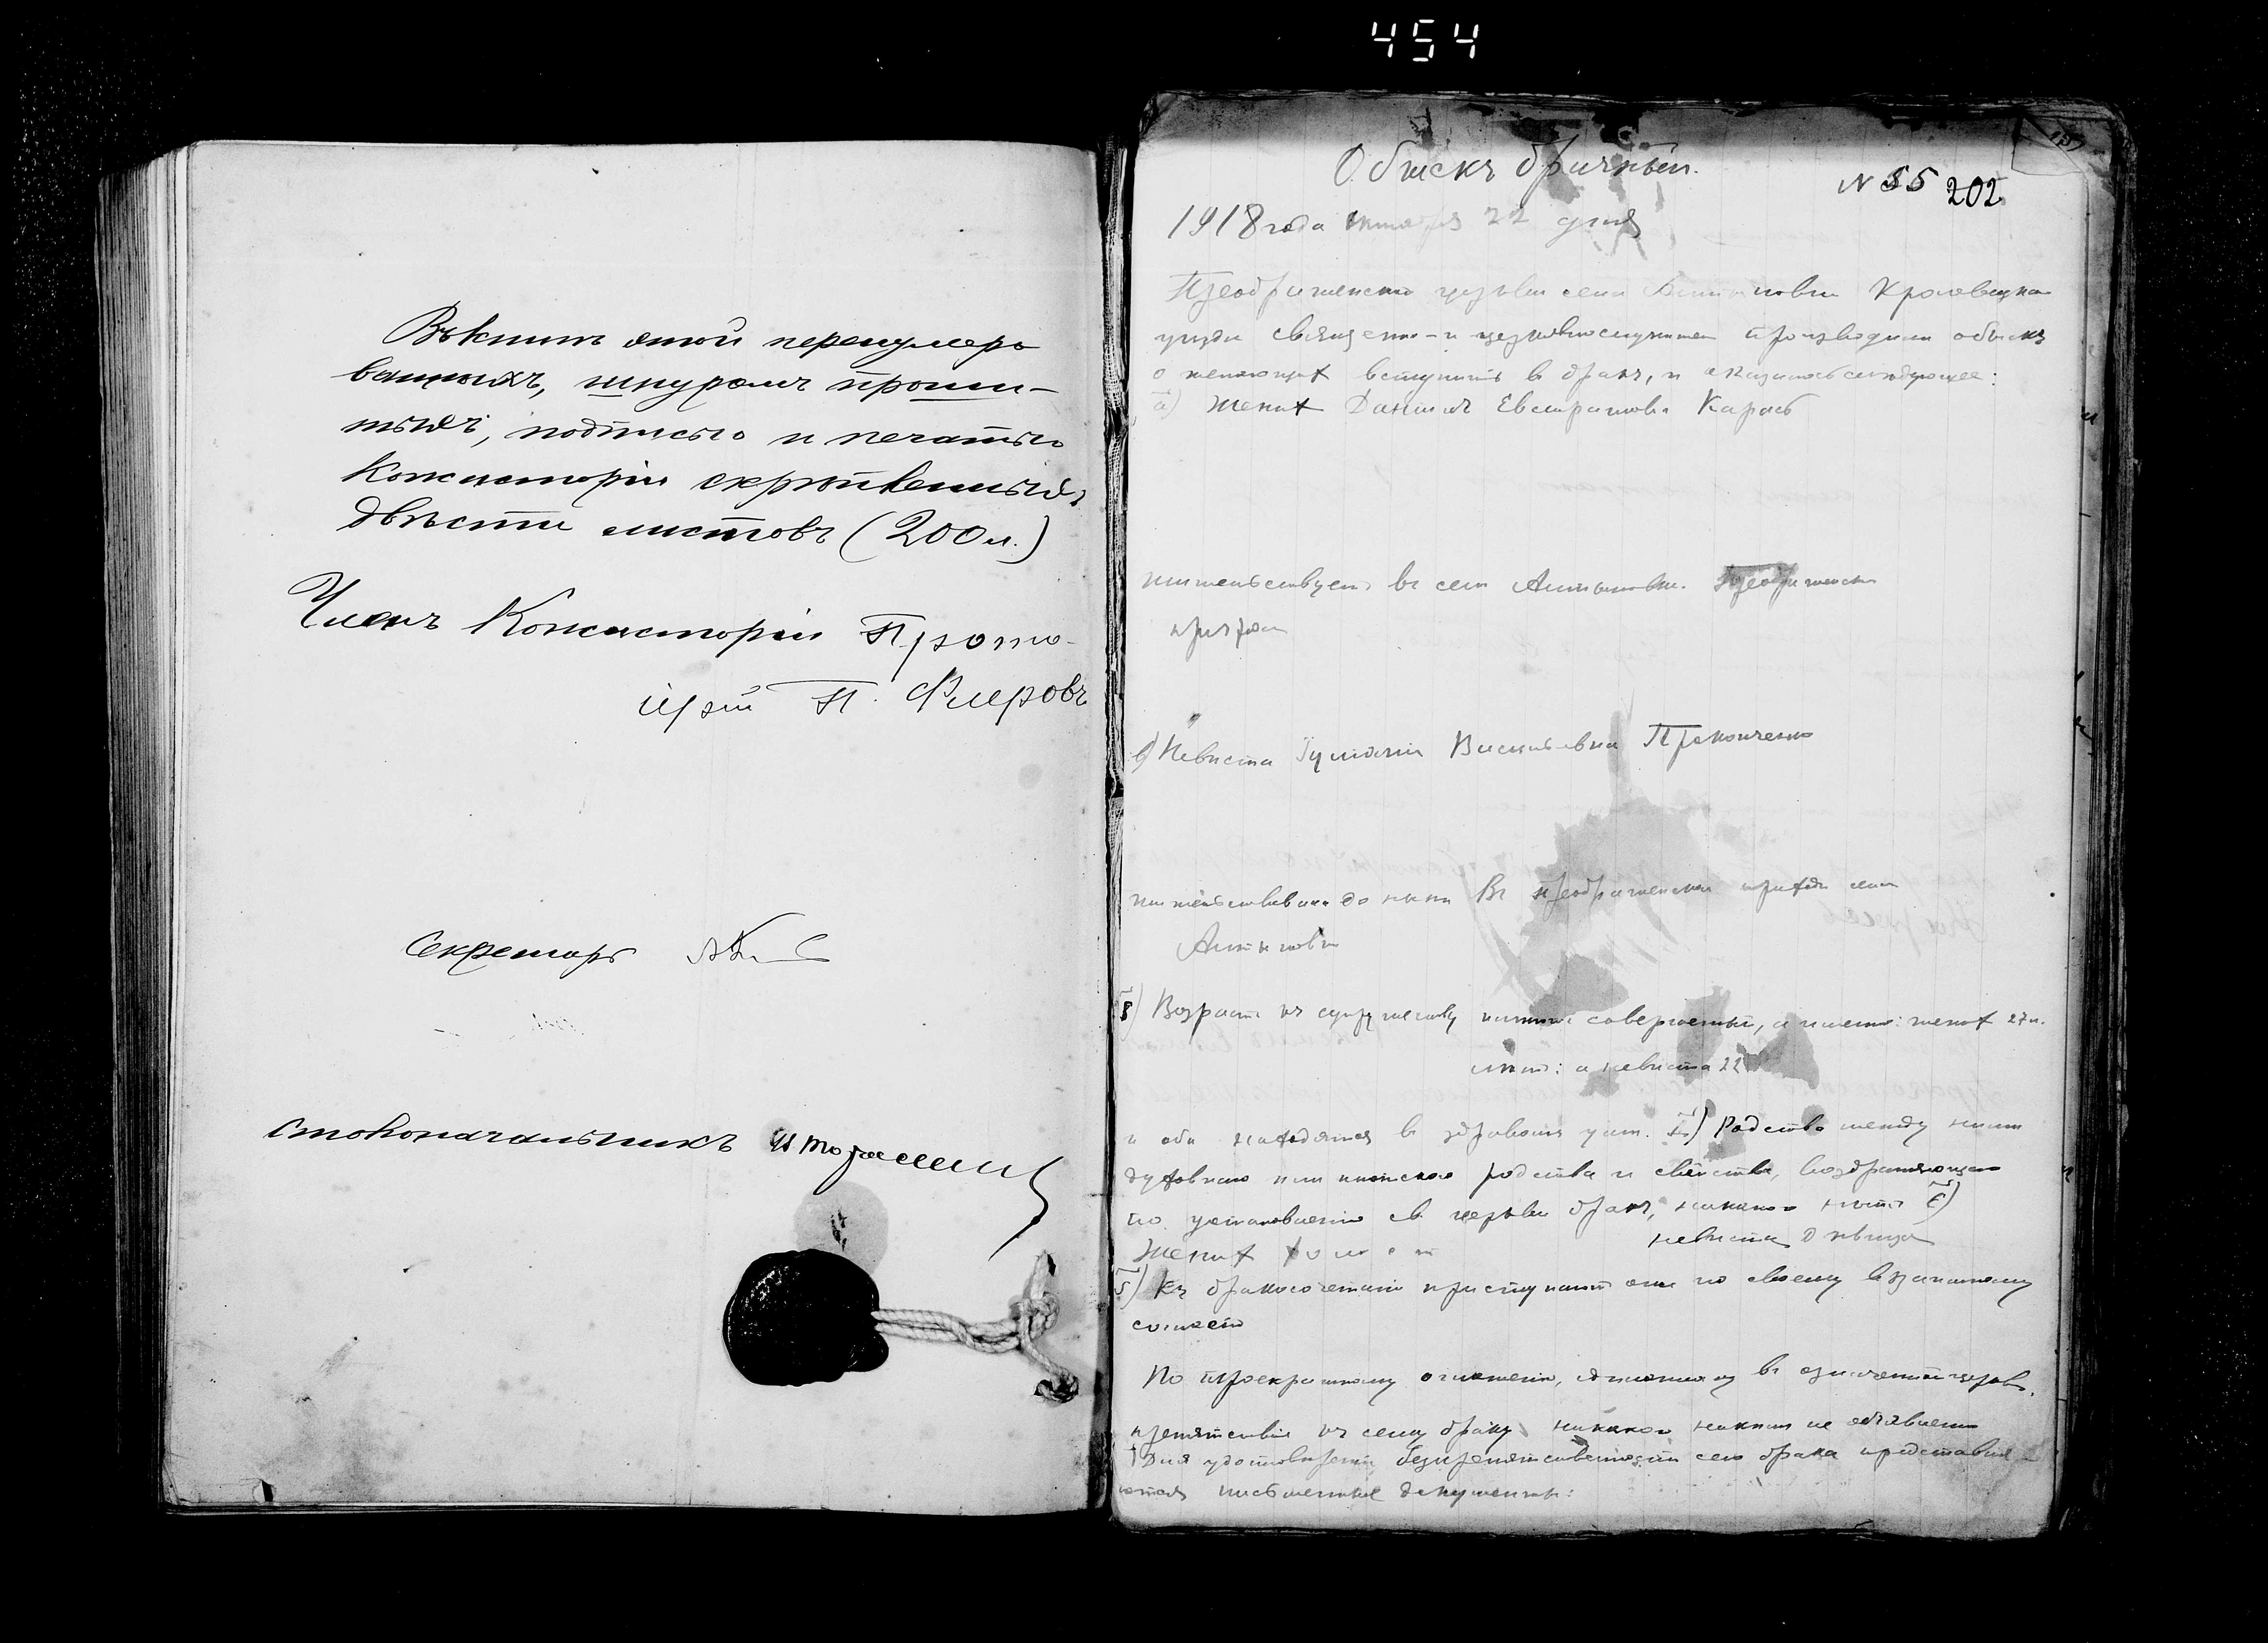 454
Въ книгѣ этой перенумеро
ванныхъ, шнуромъ проши-
тыхъ, подписью и печатью
Консисторіи скрѣпленныхъ
двѣсти листовъ (200 л.)
Членъ Консисторіи Прото-
іерей П. Флеровъ
Секретарь
Столоначальникъ
Обыскъ брачный.
N 55 202
1918 года октября 22 дня
церкви села Кролевецкаго
уѣзда священно-и церковнослужители производили обыскъ
о желающих вступить в бракъ, и оказалось следующее:
а) Жених Даніилъ Евстратовъ Карась
жительствует въ селѣ Антоновки. Преображенск
приход
в) Невѣста Васильевна Прокопченко
жительствовала до нынѣ въ Преображенском приходѣ села
г) Возрастъ къ супружеству имѣютъ совершенный, а именно: жених 27 и.
лѣтъ: а невѣста 22
и оба находятся в здравомъ умѣ. д) Родства между ними
духовного или плотского родства и свойства, возбраняющаго
по установленію св. церкви бракъ, никакого нѣтъ е)
Жених холост невѣста дѣвица
ѕ) Къ бракосочетанію приступаютъ они по своему взаимному
согласію
По троекратному оглашенію, сдѣланному въ означенной церкви,
препятствія къ сему браку никакого никѣмъ не объявлено
Для удостовѣренія безпрепятственности сего брака представля-
ются письменные документы: